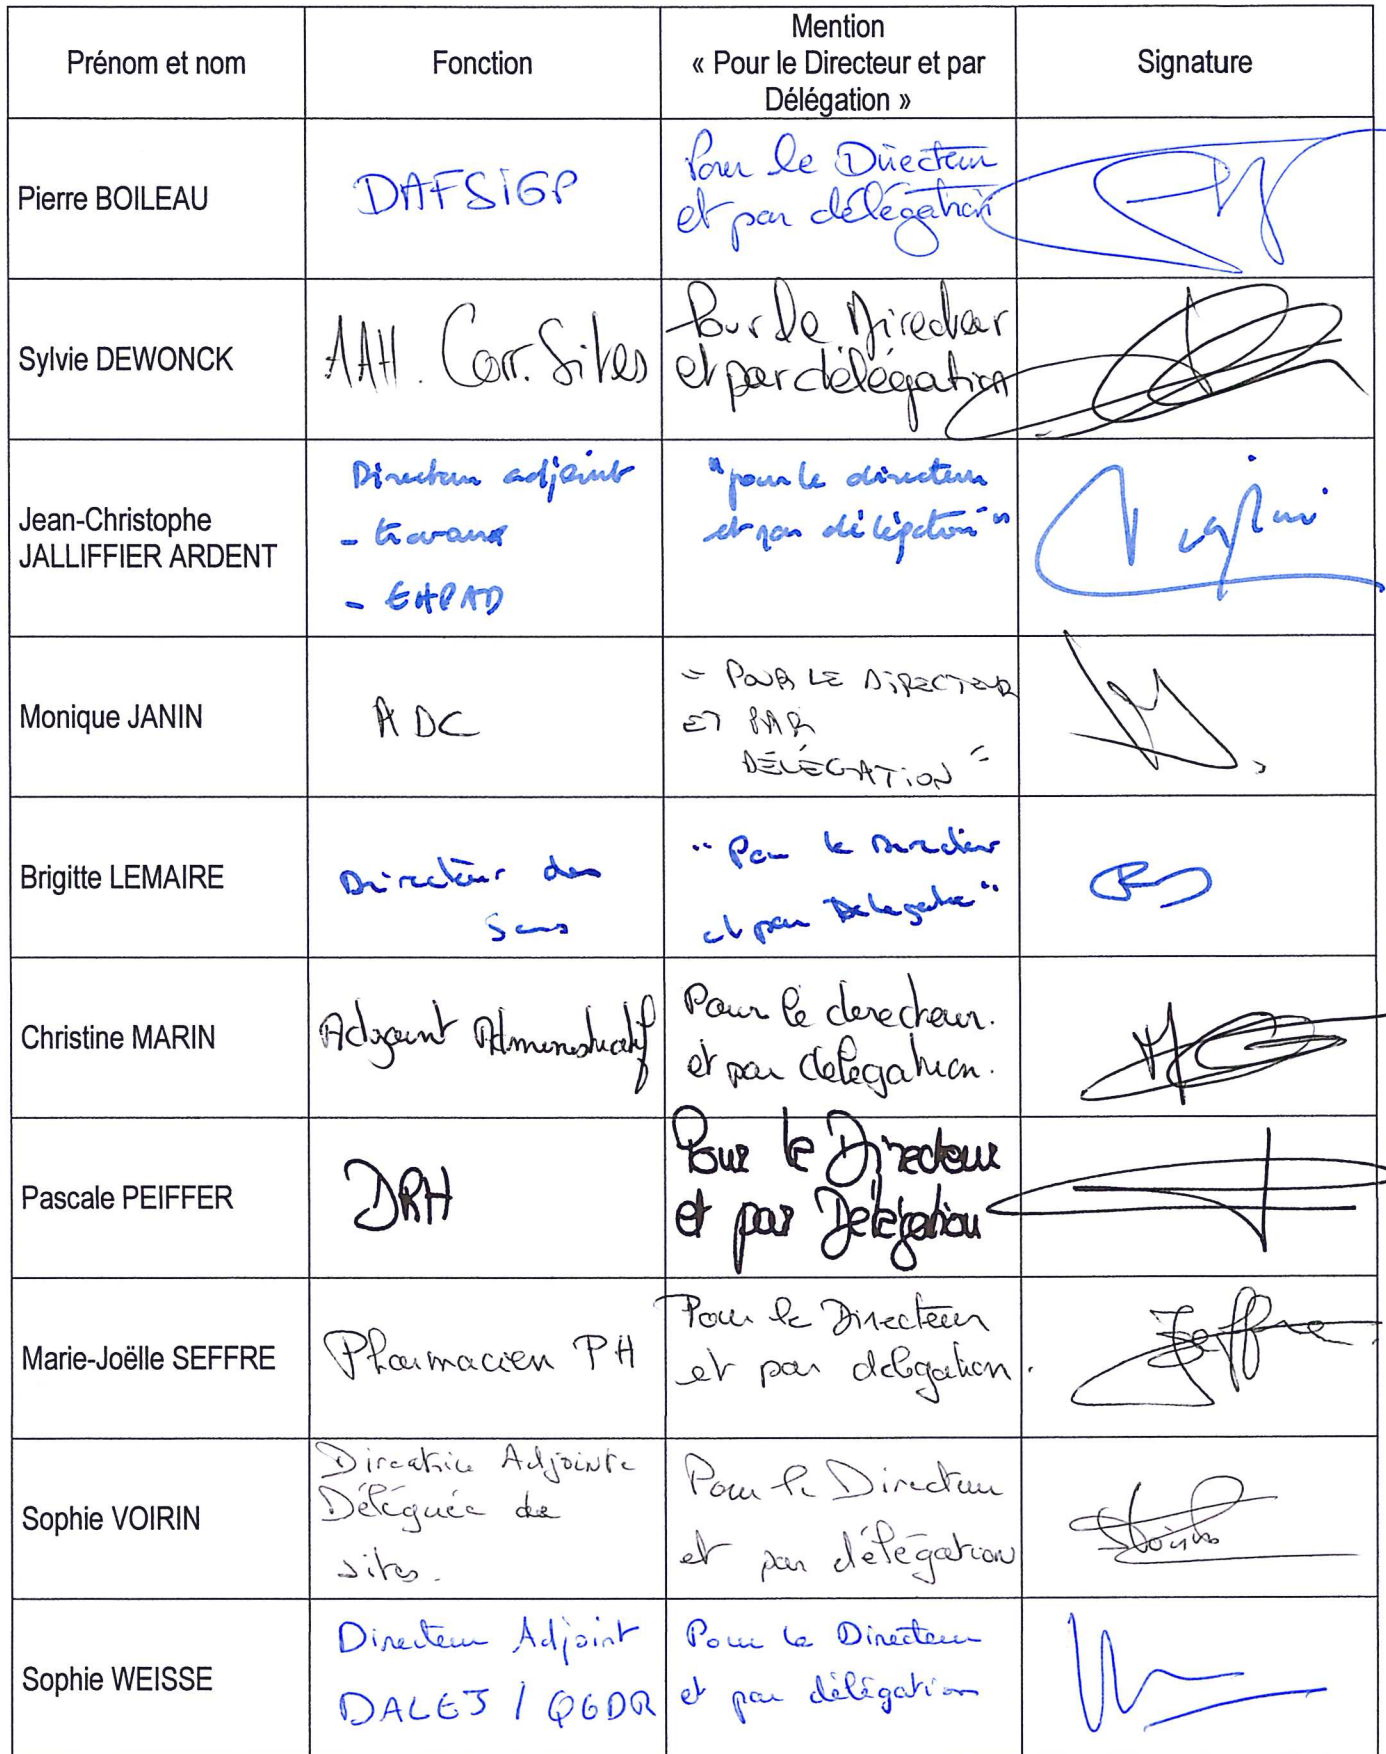 Prénom et nom
Fonction
Mention
« Pour le Directeur et par
Délégation »
Signature
Pierre BOILEAU
DAFSIGP
Pour le Directeur
et par délégation
Sylvie DEWONCK
AAH. Corr. Sites
Pour le Directeur
et par délégation
Jean-Christophe
JALLIFFIER ARDENT
Directeur adjoint
- travaux
- EHPAD
"pour le directeur
et par délégation"
Monique JANIN
ADC
" POUR LE DIRECTEUR
ET PAR
DÉLÉGATION "
Brigitte LEMAIRE
Directeur des
Soins
" Pour le Directeur
et par Delegation "
Christine MARIN
Adjoint Administratif
Pour le derecteur.
et par delegation.
Pascale PEIFFER
DRH
Pour le Directeur
et par Délégation
Marie-Joëlle SEFFRE
Pharmacien PH
Pour le Directeur
et par délégation.
Seffre
Sophie VOIRIN
Directrice Adjointe
Déléguée de
sites.
Pour le Directeur
et par délégation
Sophie WEISSE
Directeur Adjoint
DALEJ / QGDR
Pour le Directeur
et par délégation